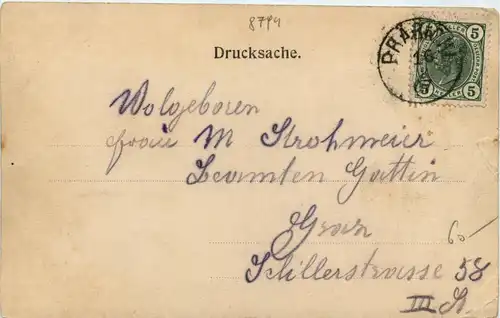 8794
Drucksache.
5 5
5 5
Wolgeboren
Frau M Strohmeier
Beamten Gattin
Graz
60
Schillerstrasse 58
III St.